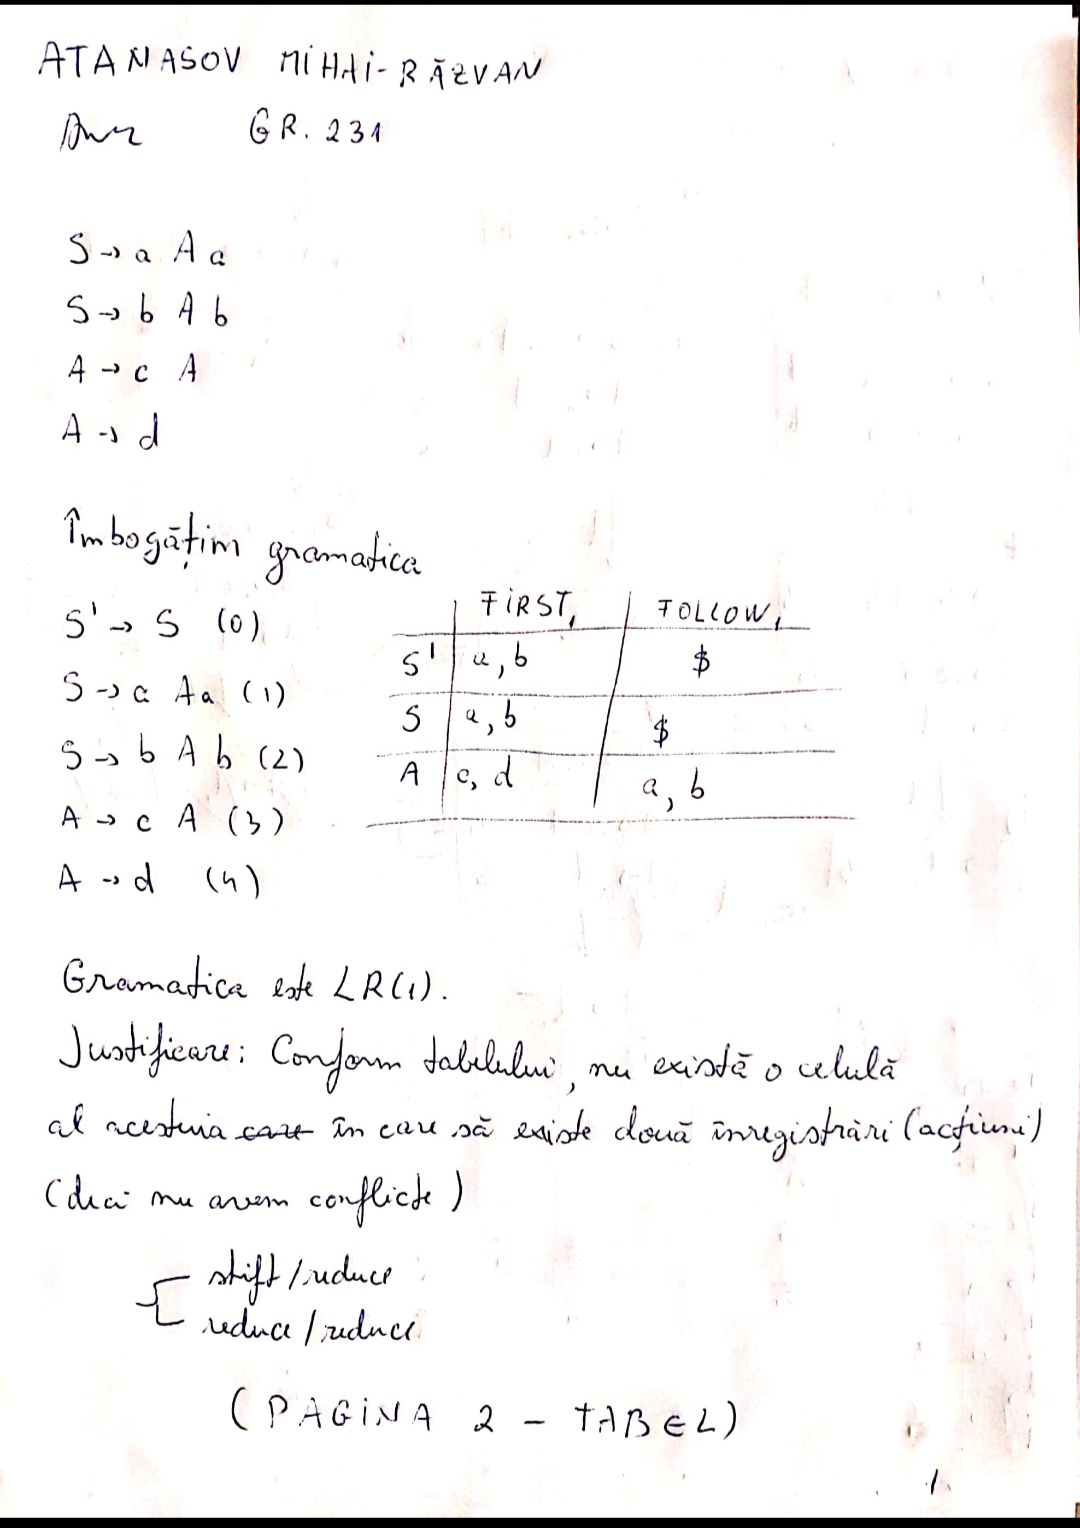 ATANASOV MIHAI-RĂZVAN
GR. 231
S → a A a
S → b A b
A → c A
A → d
Îmbogățim gramatica
S' → S (0)
S → a A a (1)
S → b A b (2)
A → c A (3)
A → d (4)
FIRST₁ FOLLOW₁
S' a, b $
S a, b $
A c, d a, b
Gramatica este LR(1).
Justificare: Conform tabelului, nu există o celulă
al acestuia care în care să existe două înregistrări (acțiuni)
(deci nu avem conflicte)
shift/reduce
reduce/reduce
(PAGINA 2 - TABEL)
1